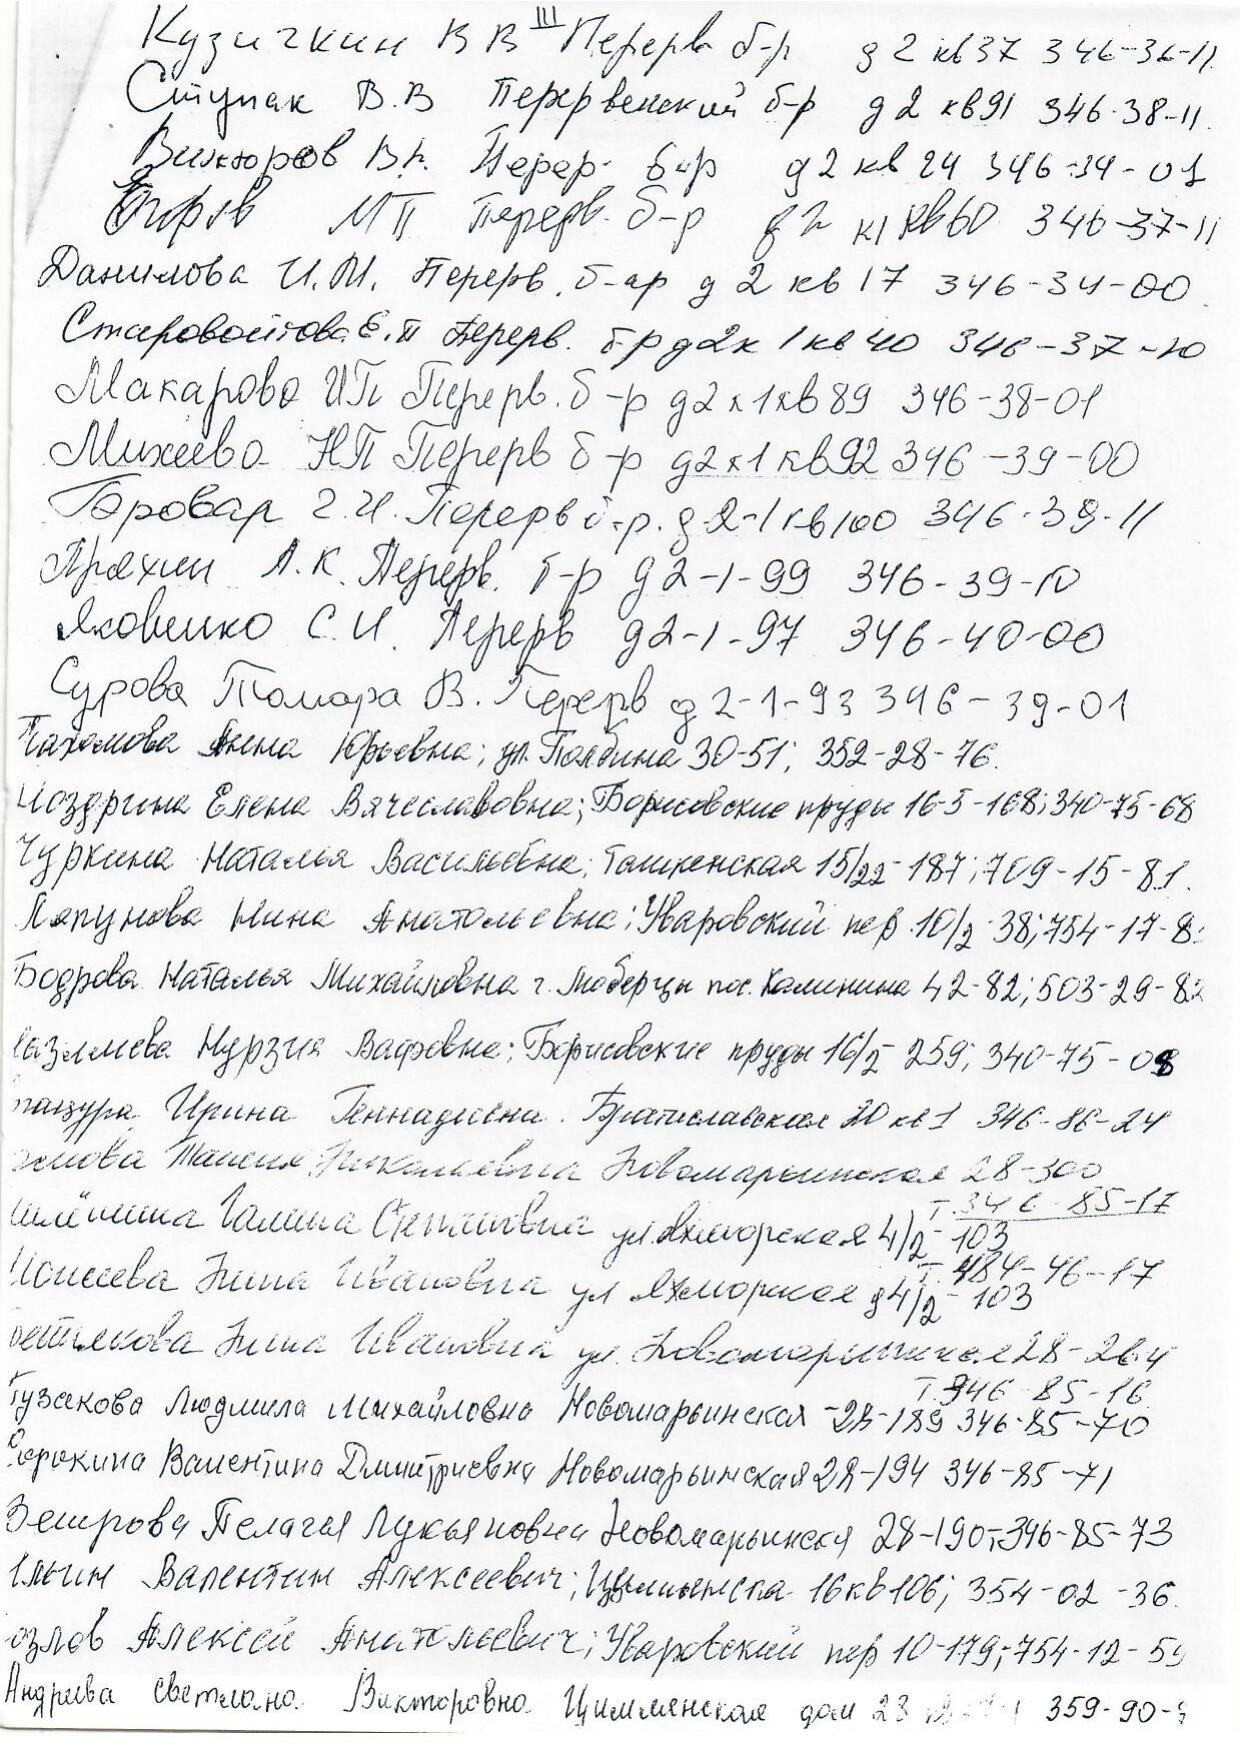 Кузичкин В В III Перерв б-р д 2 кв 37 346-36-11
Ступак В.В Перервенский б-р д 2 кв 91 346-38-11
В.П. Перер. б-р д 2 кв 24 346-34-01
МП Перерв. б-р д 2 к1 кв 60 346-37-11
Данилова И.М. Перерв. б-ар д 2 кв 17 346-34-00
Старовойтова Е.П Перерв. б-р д 2 к 1 кв 40 346-37-10
Макарова ИП Перерв. б-р д2 к1 кв 89 346-38-01
Михеева НП Перерв б-р д2 к1 кв 92 346-39-00
Бровар Г.И. Перерв б-р. д-2-1 кв 100 346-39-11
А.К. Перерв. б-р д 2-1-99 346-39-10
Яковенко С.И. Перерв д 2-1-97 346-40-00
Сурова Томара В. Перерв д 2-1-93 346-39-01
Пахомова Анна Юрьевна; ул. Полбина 30-51; 352-28-76.
Ноздрина Елена Вячеславовна; Борисовские пруды 16-5-168; 340-75-68
Чуркина Наталья Васильевна; 15/22-187; 709-15-81.
Ляпунова Нина Анатольевна; Уваровский пер. 10/2-38; 754-17-8
Бодрова Наталья Михайловна г. Люберцы пос. Калинина 42-82; 503-29-82
Нурзия Вафовна; Борисовские пруды 16/5 259; 340-75-08
Ирина Геннадиевн. Братиславская 20 кв 1 346-86-24
Таисия Николаевна Новомарьинская 28-300
Т. 346-85-17
Галина Степановна ул. 4/2-103
Т. 484-46-17
Моисеева Нина Ивановна ул д 4/2-103
Нина Ивановна ул. Новомарьинская 28-264
Т. 346-85-16
Гузакова Людмила Михайловна Новомарьинская-28-189 346-85-70
Сорокина Валентина Дмитриевна Новомарьинская 28-194 346-85-71
Пелагея Лукьяновна Новомарьинскя 28-190, 346-85-73
Ильин Валентин Алексеевич; 16 кв 106; 354-02-36.
озлов Алексей Анатольевич; Уваровский пер 10-179; 754-12-5
Андреева Светлана Викторовна Цимлянская дом 23 359-90-